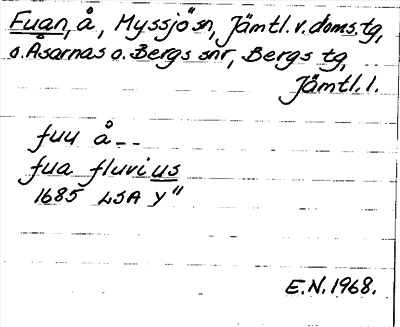 Fuan, å, Myssjö sn, Jämtl. v. doms. tg,
o. Åsarnas o. Bergs snr, Bergs tg,
Jämtl. l.
fuu å--
fua fluvius
1685 LSA Y"
E.N. 1968.